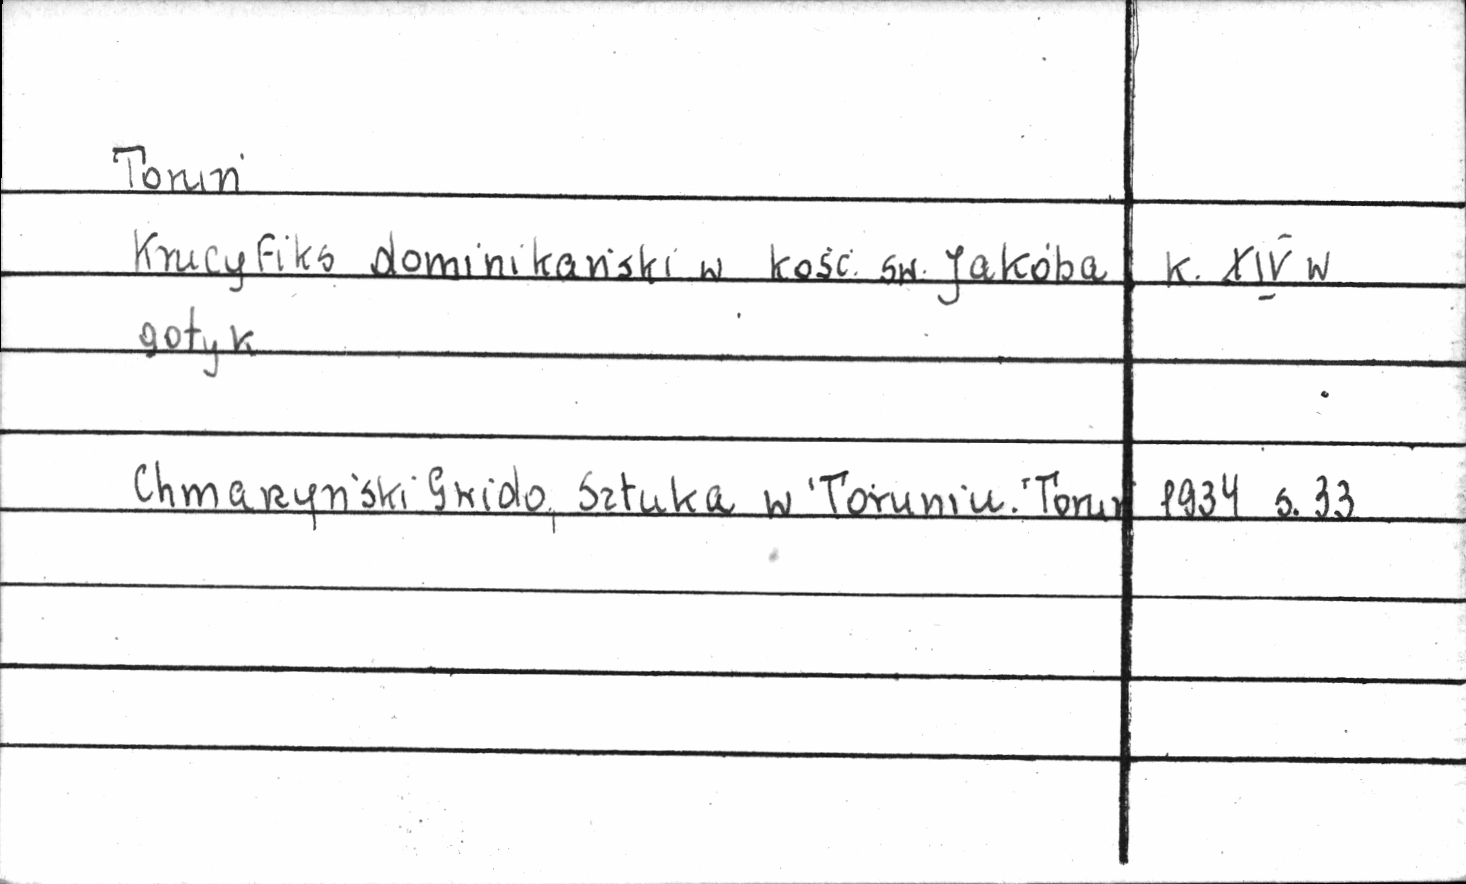 Toruń
Krucyfiks dominikański w kość. św. Jakóba k. XIV w
gotyk
Chmarzyński Gwido, Sztuka w Toruniu. Toruń 1934 s. 33